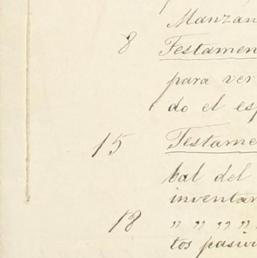 Manzan
8 Testamen
para ver
do el esp
15 Testame
tal del
inventar
18 " " " "
tos pasiv